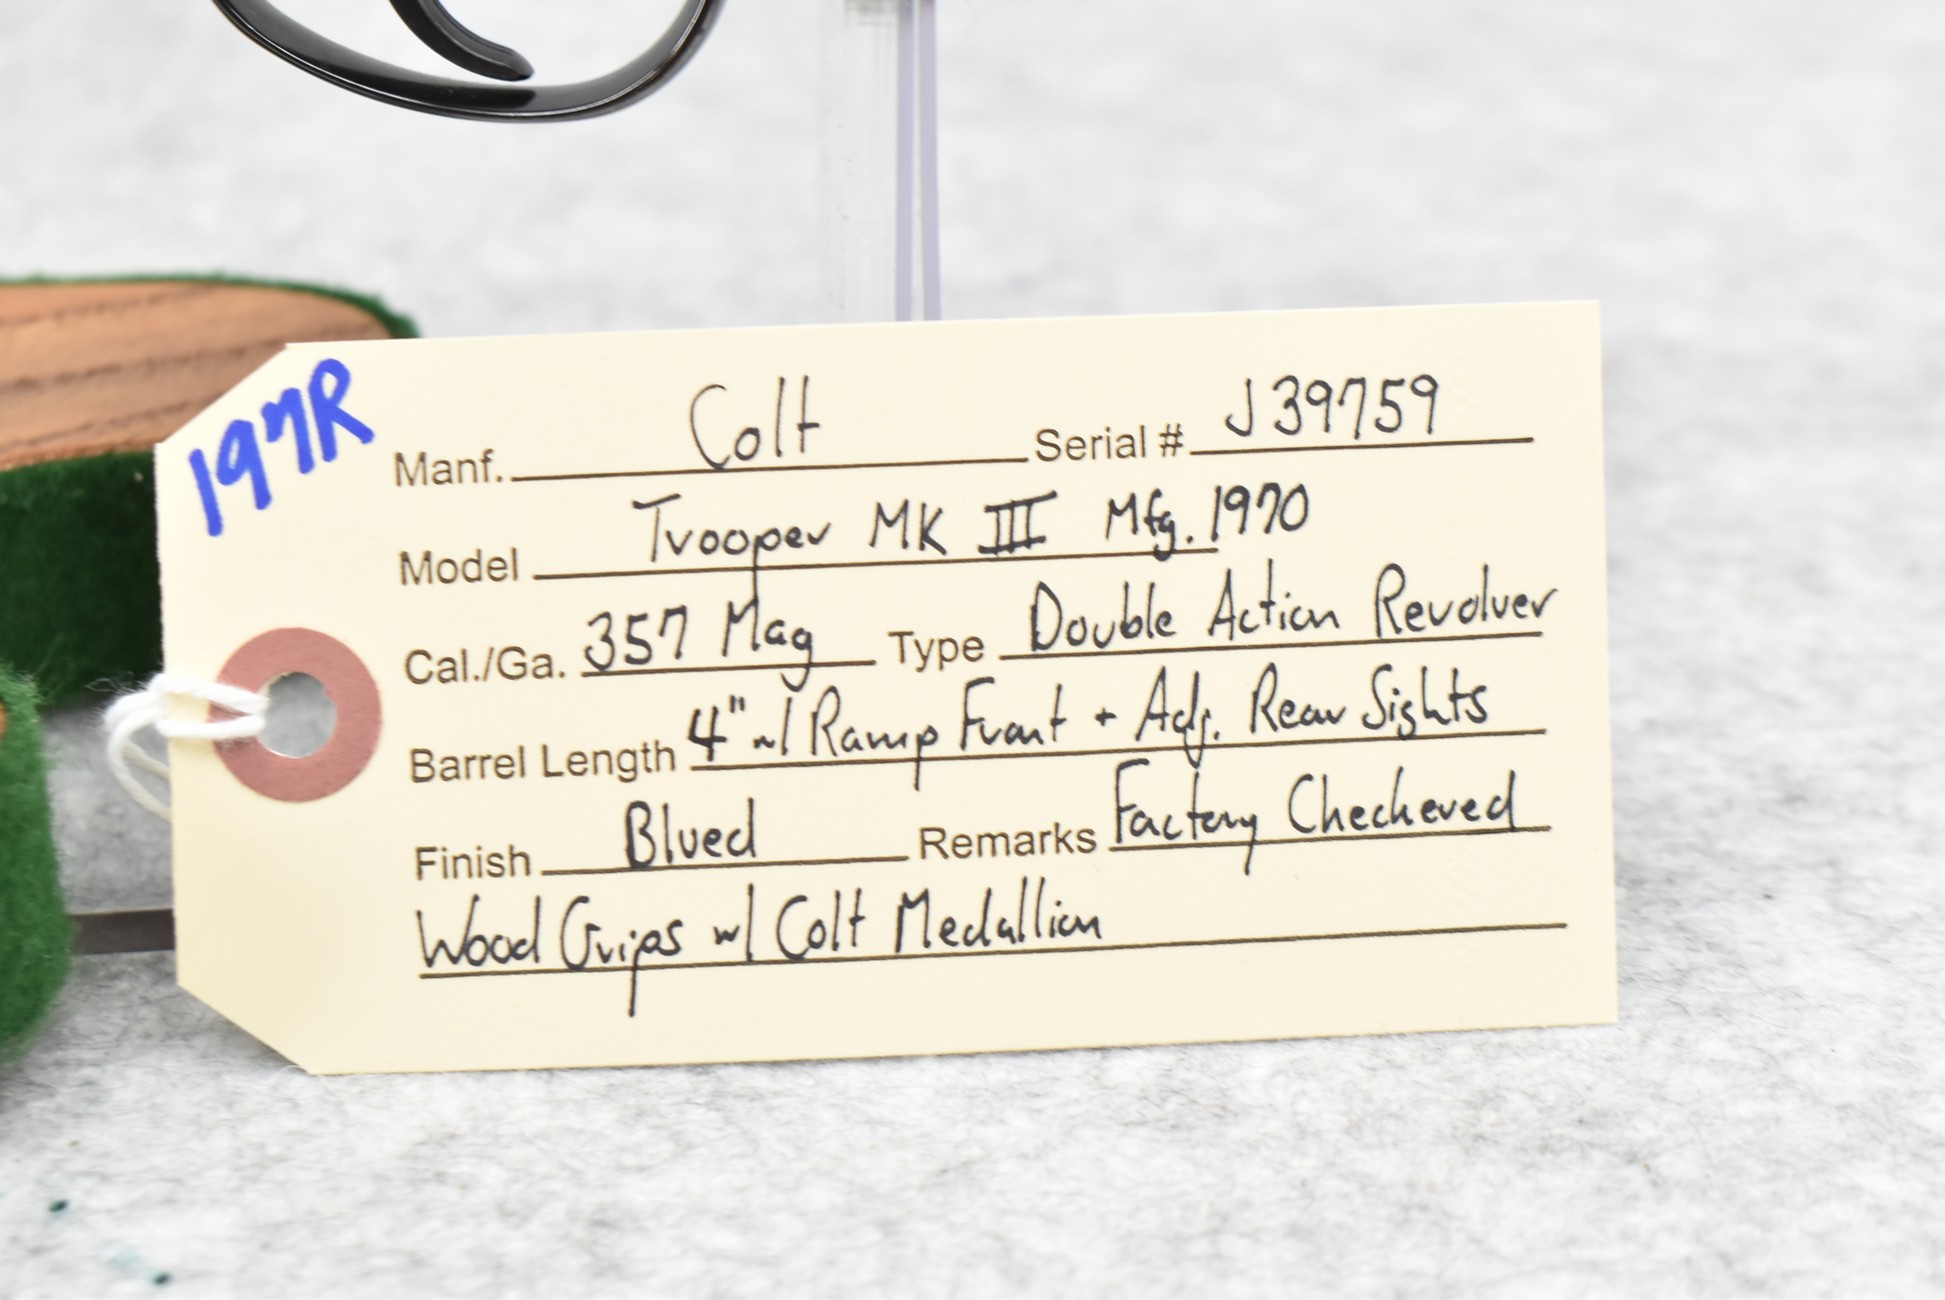 197R
Manf. Colt Serial # J39759
Model Trooper MK III Mfg. 1970
Cal./Ga. 357 Mag Type Double Action Revolver
Barrel Length 4" w/ Ramp Front + Adj. Rear Sights
Finish Blued Remarks Factory Checkered
Wood Grips w/ Colt Medallion